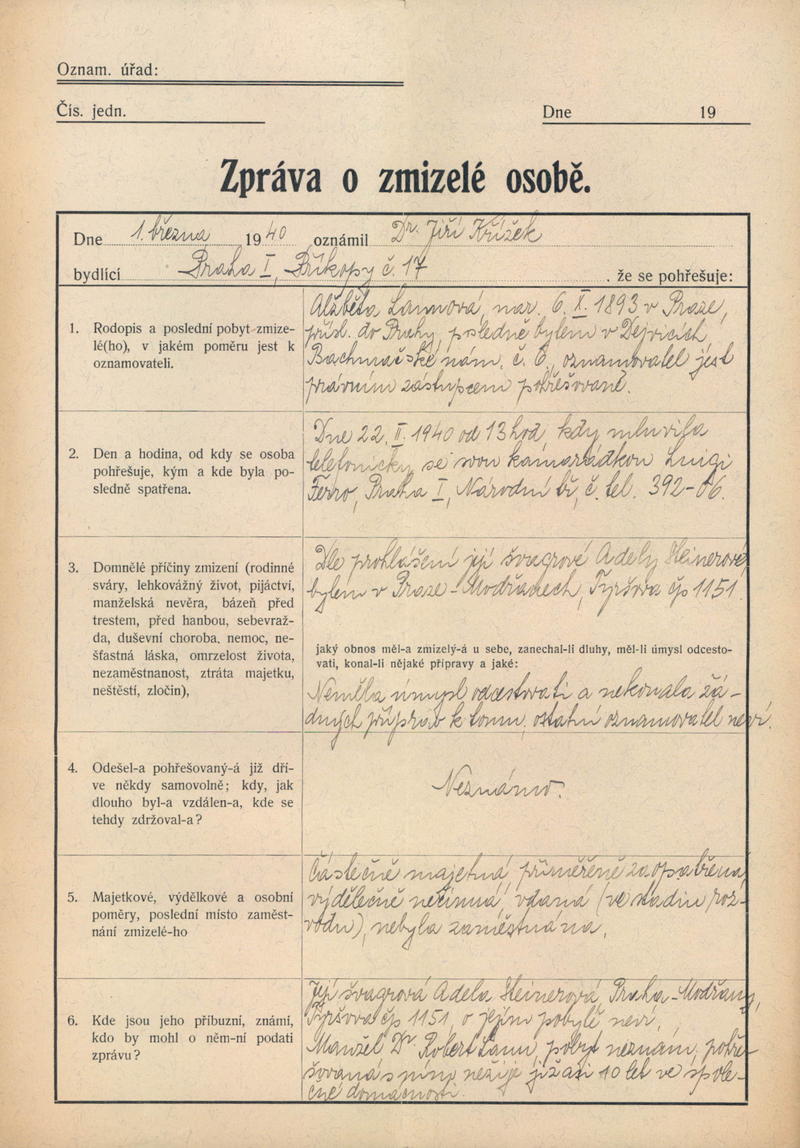 Oznam. úřad:
Čís. jedn. Dne 19
Zpráva o zmizelé osobě.
Dne 1. března 1940 oznámil Dr. Jiří Křížek
bydlící Praha I, Příkopy č. 17, že se pohřešuje:
1. Rodopis a poslední pobyt zmize-
lé(ho), v jakém poměru jest k
oznamovateli.
Alžběta Lannová, nar. 6. X. 1893 v Praze,
přísl. do Prahy, posledně bytem v Dejvicích,
Bachmačské nám. č. 6, oznamovatel jest
právním zástupcem pohřešované.
2. Den a hodina, od kdy se osoba
pohřešuje, kým a kde byla po-
sledně spatřena.
Dne 22. II. 1940 od 13 hod, kdy mluvila
telefonicky se svou kamarádkou Luigi
Ferro, Praha I, Národní tř., č. tel. 392-06.
3. Domnělé příčiny zmizení (rodinné
sváry, lehkovážný život, pijáctví,
manželská nevěra, bázeň před
trestem, před hanbou, sebevraž-
da, duševní choroba, nemoc, ne-
šťastná láska, omrzelost života,
nezaměstnanost, ztráta majetku,
neštěstí, zločin),
Dle prohlášení její švagrové Adely Heinerové
bytem v Praze-Modřanech, Tyršova čp 1151.
jaký obnos měl-a zmizelý-á u sebe, zanechal-li dluhy, měl-li úmysl odcesto-
vati, konal-li nějaké přípravy a jaké:
Neměla úmysl odcestovati a nekonala žá-
dných příprav k tomu, ostatní oznamovatel neví.
4. Odešel-a pohřešovaný-á již dří-
ve někdy samovolně; kdy, jak
dlouho byl-a vzdálen-a, kde se
tehdy zdržoval-a?
Neznámo.
5. Majetkové, výdělkové a osobní
poměry, poslední místo zaměst-
nání zmizelé-ho
Částečně majetná, přiměřeně zaopatřena,
výdělečně nečinná, vdaná (ve stadiu roz-
vodu), nebyla zaměstnána.
6. Kde jsou jeho příbuzní, známí,
kdo by mohl o něm-ní podati
zprávu?
Její švagrová Adela Heinerová, Praha-Modřany,
Tyršova čp 1151, o jejím pobytě neví,
Manžel Dr. Robert Lann, pobyt neznám, pohře-
šovaná s ním nežije již asi 10 let ve spole-
čné domácnosti.